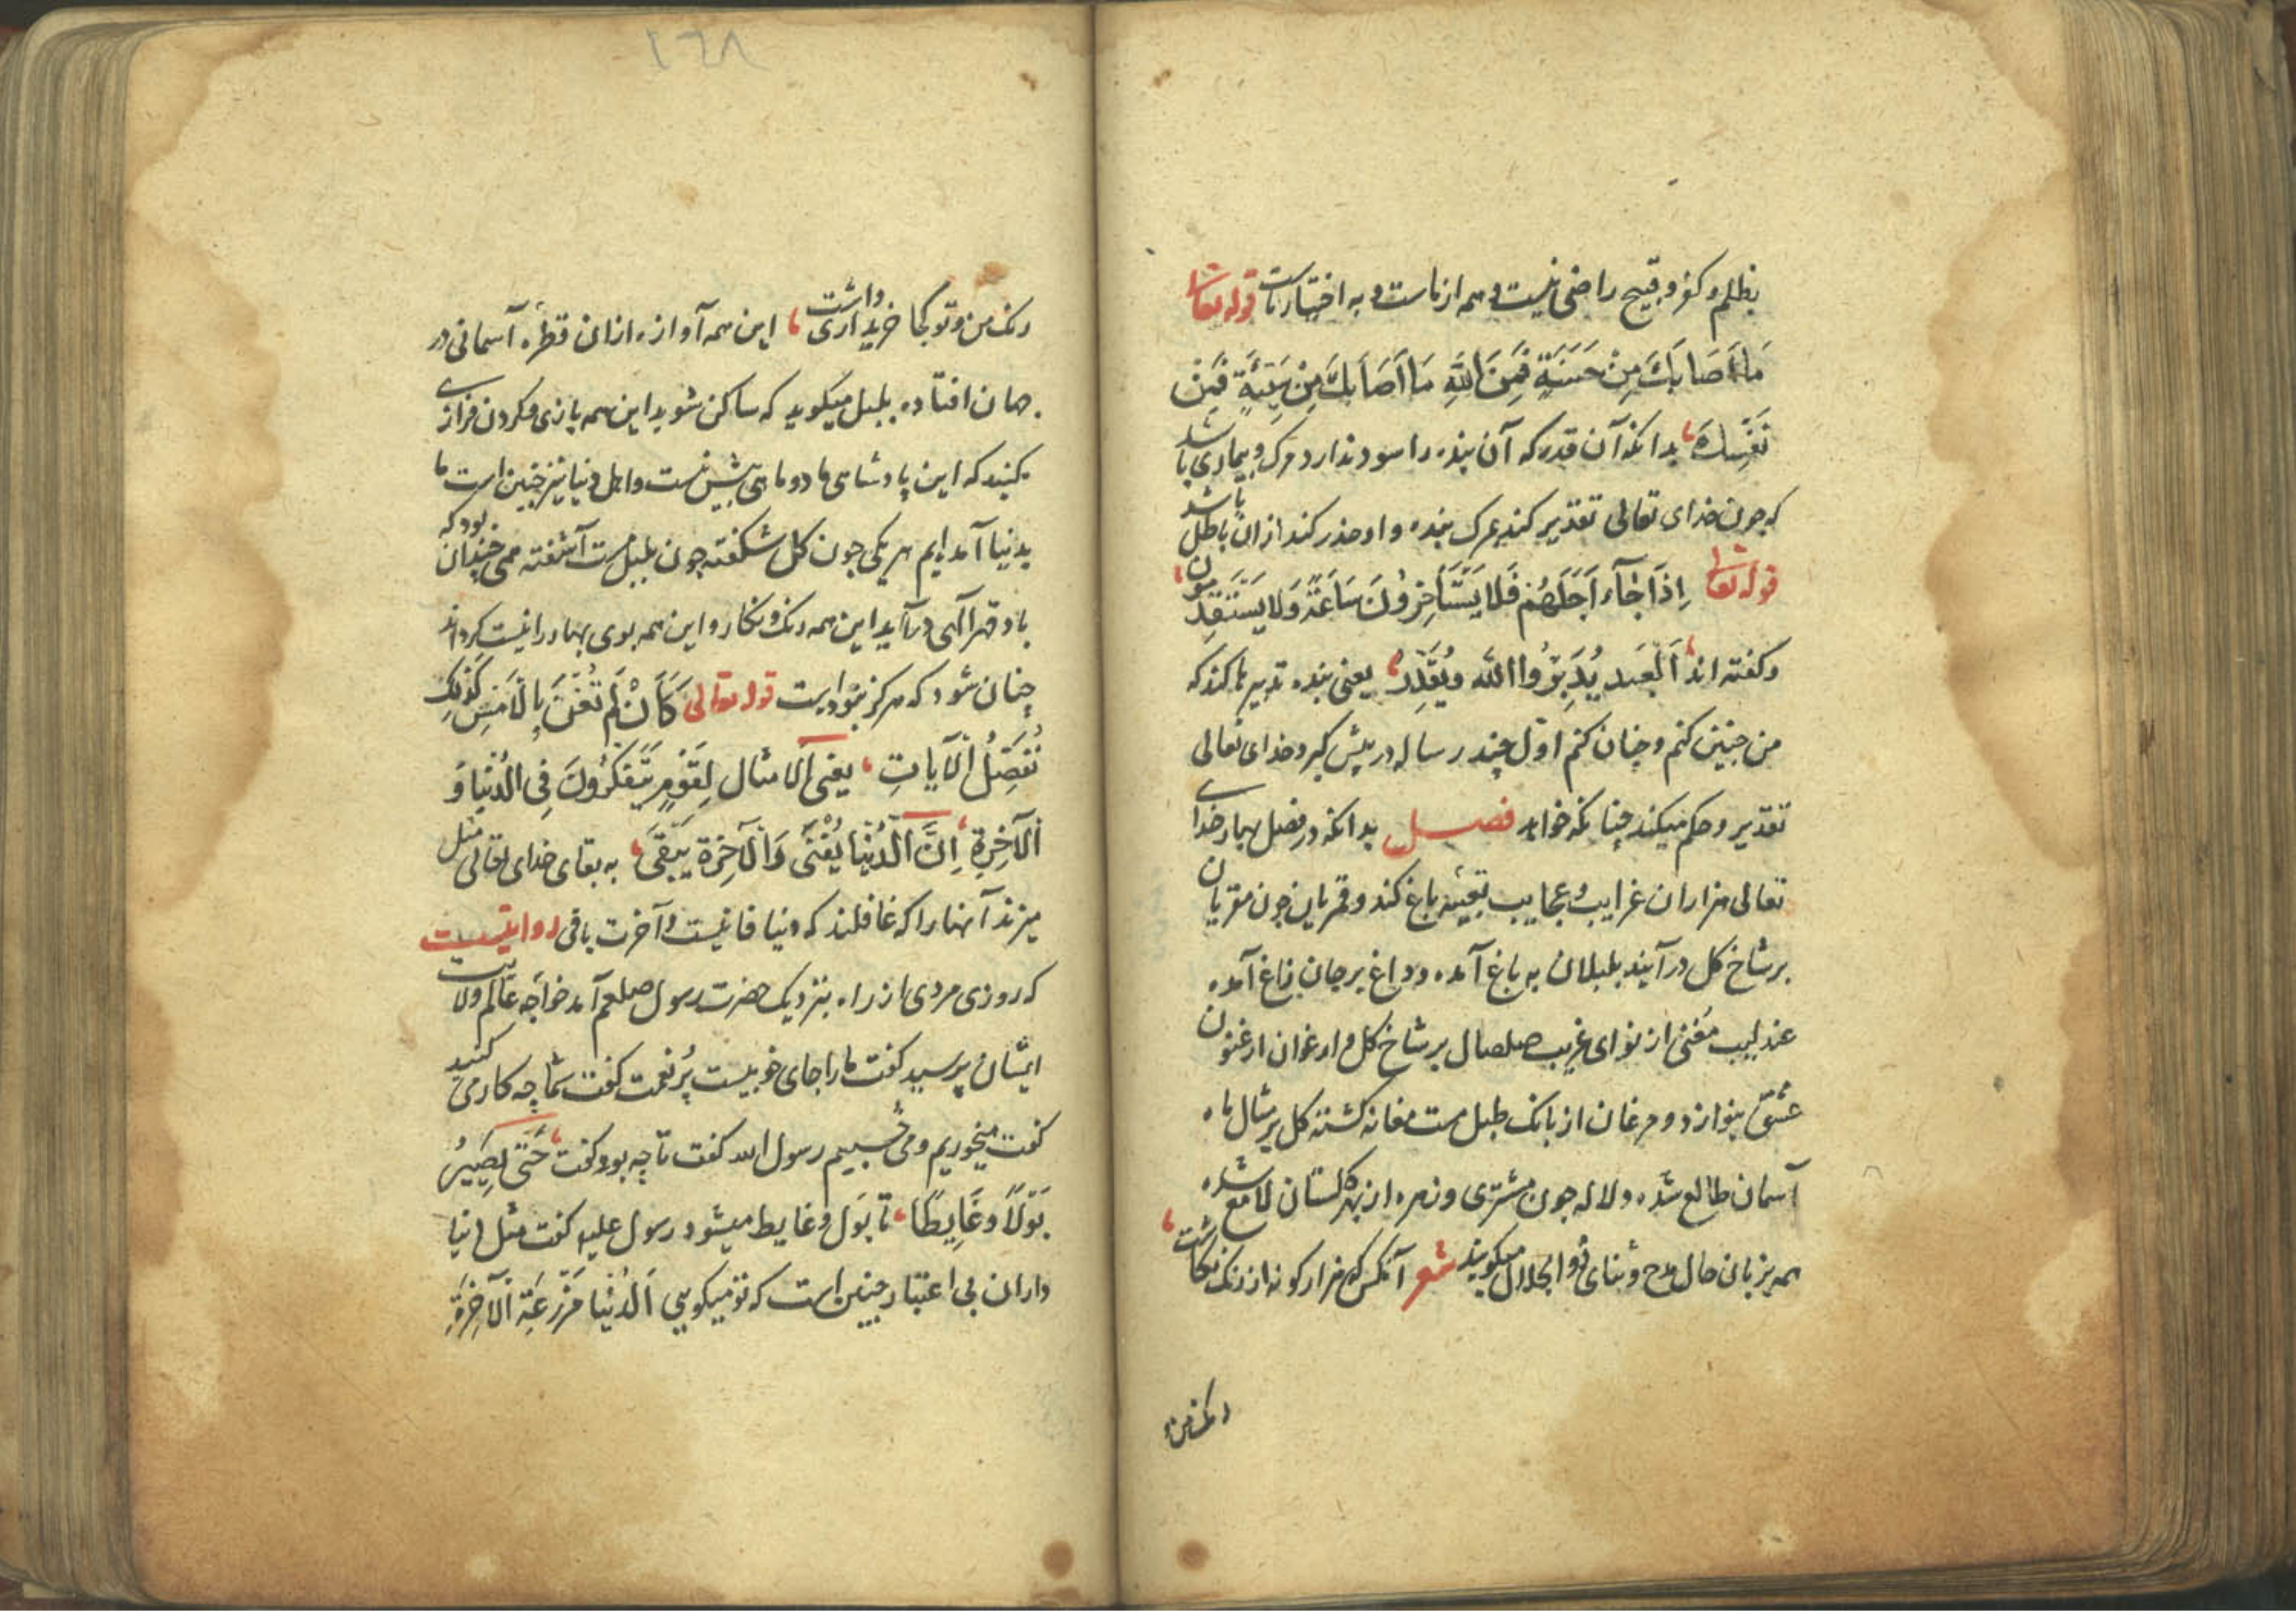 بظلم و کفر و قبیح راضی نیست و همه از ماست و به اختیار ماست قوله تعالی
مَا أَصَابَكَ مِنْ حَسَنَةٍ فَمِنَ اللَّهِ مَا أَصَابَكَ مِنْ سَيِّئَةٍ فَمِنْ
نَفْسِكَ بدانکه آن قدر که آن بنده را سود ندارد مرک و بیماری باشد
که چون خدای تعالی تقدیر کند بمرک بنده و او حذر کند از ان باطل باشد
قوله تعالی اِذَا جَآءَ اَجَلُهُمْ فَلَا يَسْتَأْخِرُونَ سَاعَةً وَلَا يَسْتَقْدِمُونَ
و کفته اند اَلْعَبد يُدَبِّرُ واالله ويُقَدِّر یعنی بنده تدبیرها کند که
من چنین کنم و چنان کنم اوّل چند رساله در پیش کیرد خدای تعالی
تقدیر و حکم میکند چنانکه خواهد فصل بدانکه در فصل بهار خدای
تعالی هزاران غرایب و عجایب تعبیه باغ کند و قمریان چون مقریان
بر شاخ کل درآیند بلبلان به باغ آمده و داغ بر جان زاغ آمده
عندلیب مُغنی از نوای غریب صلصال بر شاخ کل و ارغوان ارغنون
عشق بنوازد و مرغان از بانک طبل مست مغانه کشته کل بر مثال ماه
آسمان طالع شده و لاله چون مشتری و زهره از بهر کلستان لامع شده
همه بزبان حال مدح و ثنای ذو الجلال میکویند شعر آنکس که هزار کونه از رنک نکاشت
رنک من و
١٦٨
رنک من و تو کجا خریداری داشت این همه آوازه از ان قطره آسمانی در
جهان افتاده بلبل میکوید که ساکن شوید این همه بازی و کردن فرازی
مکنید که این پادشاهی ما دو ماهی بیش نیست و اهل دنیا نیز چنین است ما
بدنیا آمده ایم هر یکی چون کل شکفته چون بلبل مست آشفته همی چندان بود که
باد قهر الهی درآید این همه رنک و نکار و این همه بوی بهار را نیست کرداند
چنان شود که هرکز نبوداست قوله تعالی كَأَنْ لَمْ تَغْنَ بِالْأَمْسِ كَذٰلِكَ
نُفَصِّلُ الْآيَاتِ یعنی الامثال لِقَوْمٍ يَتَفَكَّرُونَ فِي الدُّنْيَا وَ
الْآخِرَةِ اِنَّ الدُّنْيَا يَفْنَى وَالْآخِرَةَ يَبْقَى به بقای خدای تعالی مثل
میزند آنها را که غافلند که دنیا فانیست و آخرت باقی روایتست
که روزی مردی از راه بنزدیک حضرت رسول صلعم آمد خواجه عالم ولایت
ایشان پرسید کفت ما را جای خوبیست پُر نعمت کفت شما چه کار می کنید
کفت میخوریم و می خسبیم رسول الله کفت تا چه بود کفت حَتَّى يَصِيرُ
بَوْلًا وَغَايِطًا تا بَول و غایط میشود رسول علیه کفت مثل دنیا
داران بی اعتبار چنین است که تو میکویی اَلدُّنْيَا مَزْرَعَةِ الْآخِرَةِ